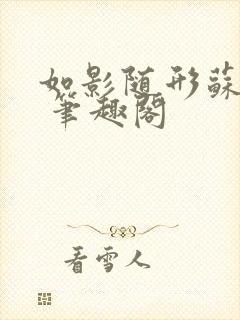 如影随形蘇
筆趣阁
看雪人